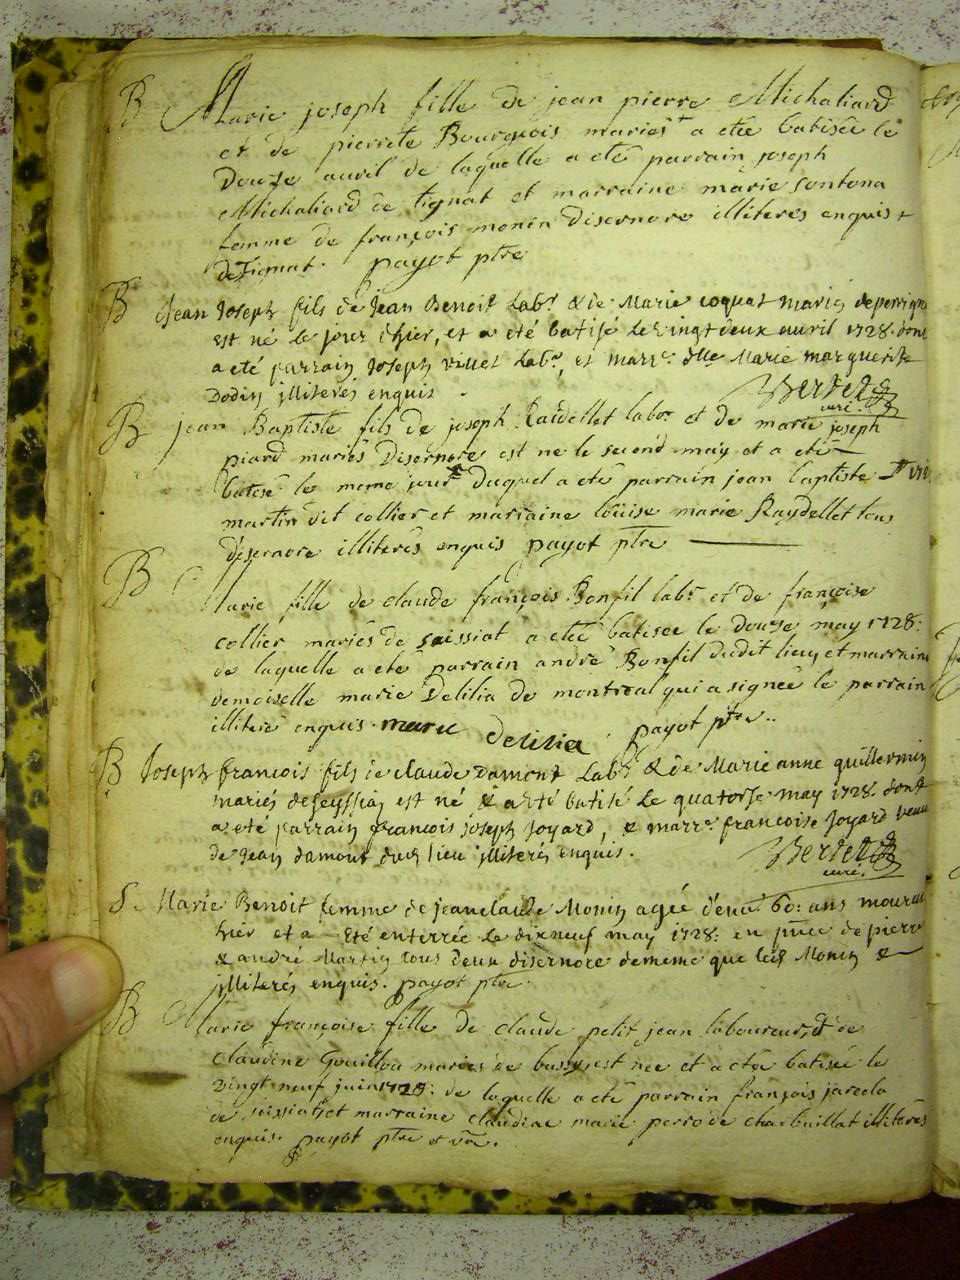 B Marie joseph fille de jean pierre Michaliard
et de pierrete Bourgeois mariés a eté batisée le
Douze auril de laquelle a eté parrain joseph
Michaliard de tignat et marraine marie sontona
femme de françois monin Disernore illiteres enquis
de tignat. payot ptre
B Jean Joseph fils de Jean Benoit Labr & de Marie coquat mariés de perrigna
est né le jour d'hier, et a eté batisé le vingt deux auril 1728. dont
a eté parrain Joseph villet Labr, et marr. dlle Marie marguerite
Dodin illiterés enquis. Bertet
curé
B jean Baptiste fils de joseph Raidellet labor et de marie joseph
piard mariés Disernore est né le second may et a eté
batisé le meme jour Duquel a eté parrain jean baptiste
martin dit collier et marraine loüise marie Raydellet tous
d'isernore illiterés enquis payot ptre
B Marie fille de claude françois Bonfil labr et de françoise
collier mariés de seissiat a eté batisée le douze may 1728:
de laquelle a eté parrain andré Bonfil dudit lieu et marraine
demoiselle marie Delilia de montreal qui a signée le parrain
illiteré enquis. marie Delilia payot ptre
B Joseph francois fils de claude damont Labr & de Marie anne guillermin
mariés de seyssias est né & a eté batisé le quatorse may 1728. dont
a eté parrain francois joseph Joyard, & marre francoise Joyard veuu
de Jean damont dud. lieu illiterés enquis. Bertet
curé
S. Marie Benoit femme de jean claude Monin agée d'enu. 60: ans mourut
hier et a eté enterrée le dixneuf may 1728: en pñce de pierre
& andré Martin tous deux disernore de meme que led Monin &
illiterés enquis. payot ptre
B Marie françoise fille de claude petit jean laboureur, & de
claudine Gouillou mariés de bussy est née et a eté batisée le
vingt neuf juin 1728: de laquelle a eté parrain françois jarcela
de seissiat et marraine claudine marie perrode charbuillat illiterés
enquis. payot ptre et vre.